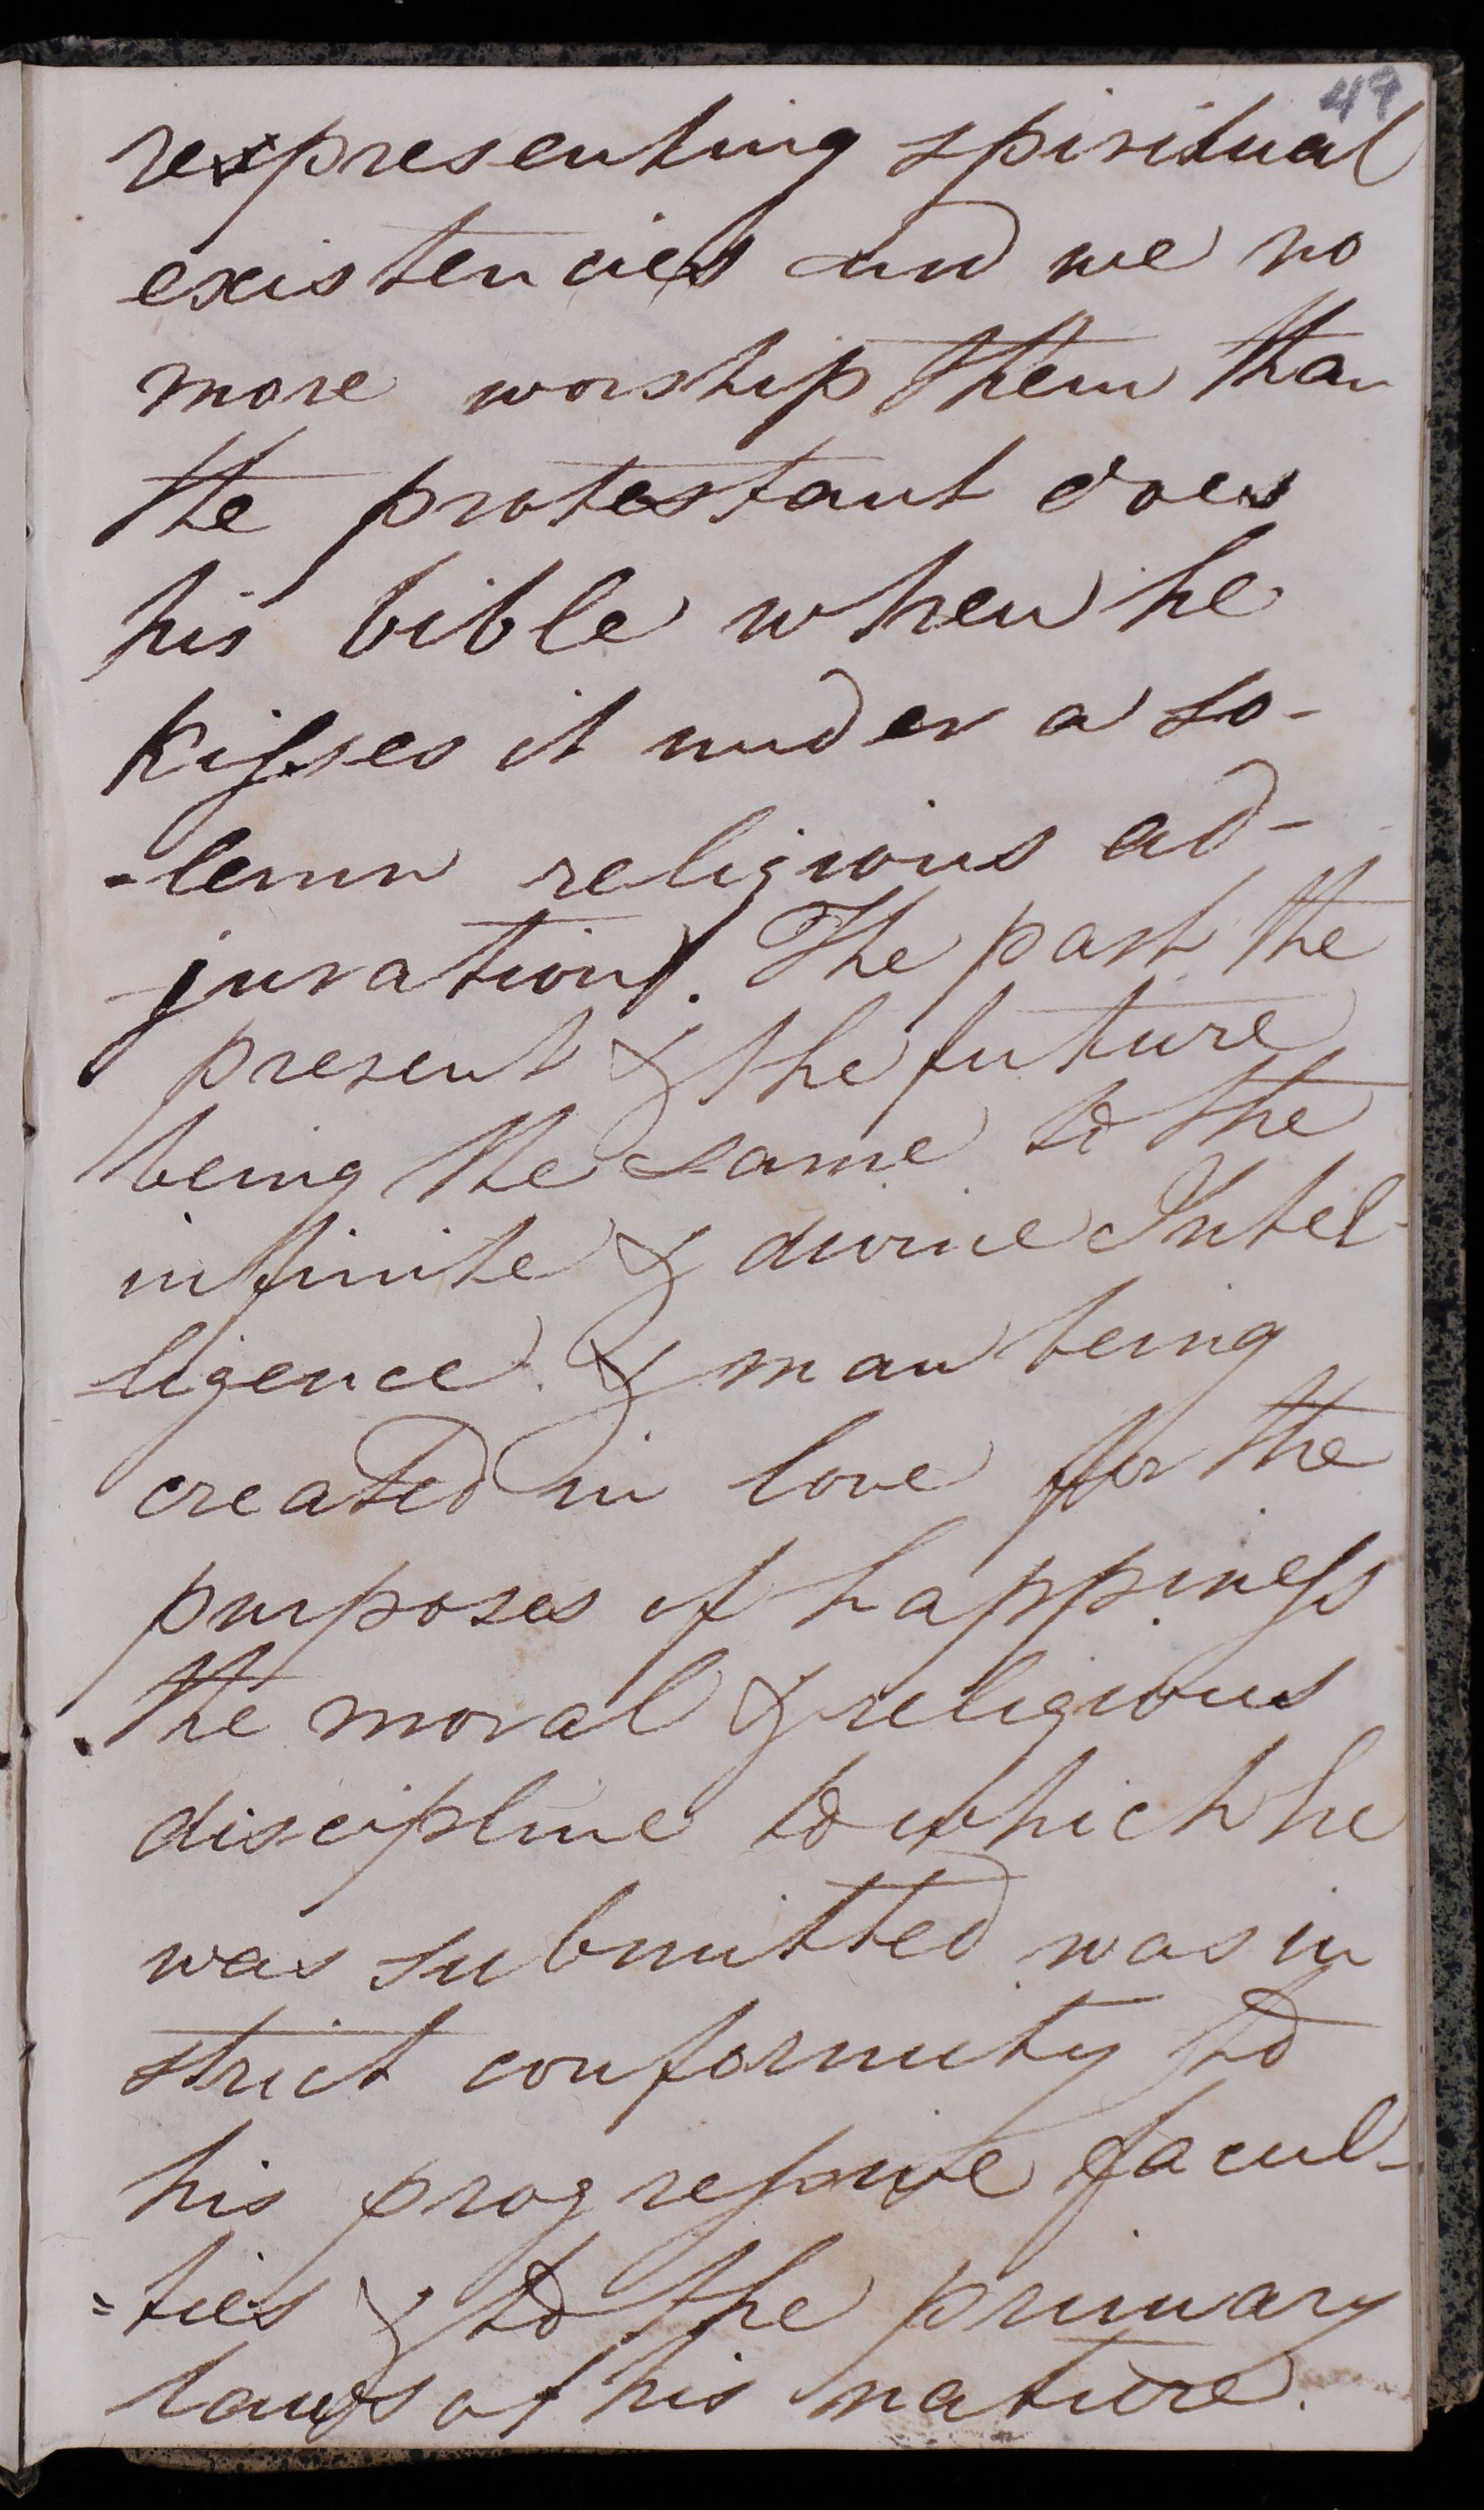 49
representing spiritual
existencies and we no
more worship them than
the protestant does
his bible when he
kisses it under a so-
-lemn religious ad-
juration. The past the
present & the future
being the same to the
infinite & divine Intel-
ligence. & man being
created in love for the
purposes of happiness
the moral & religious
discipline to which he
was submitted was in
strict conformity to
his progressive facul-
=ties & to the primary
laws of his nature.